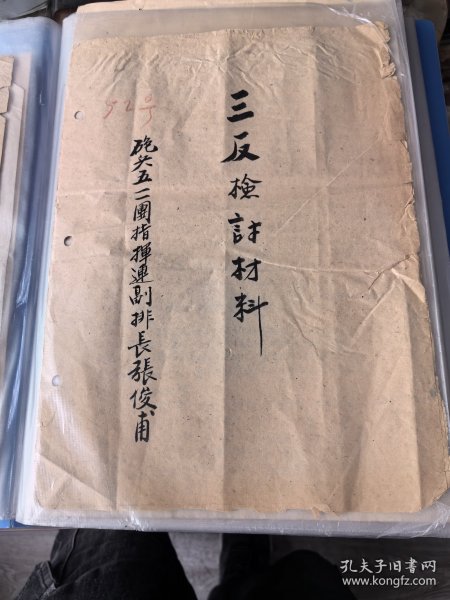 三反檢討材料
砲兵五一團指揮連副排長張俊甫
92号
孔夫子旧书网
www.kongfz.com